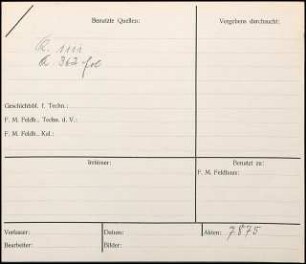 Benutzte Quellen:
Vergebens durchsucht:
Geschichtsbl. f. Techn.:
F. M. Feldh., Techn. d. V.:
F. M. Feldh., Kul.:
Irrtümer:
Benutzt zu:
F. M. Feldhaus:
Verfasser:
Datum:
Akten: 7875
Bearbeiter:
Bilder: